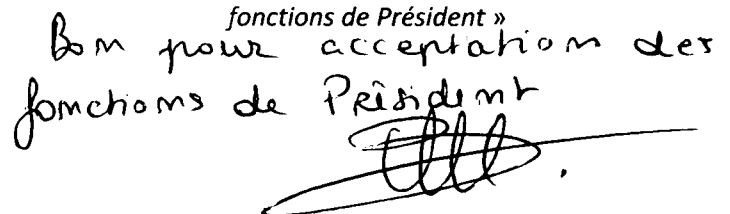 fonctions de Président »
Bon pour acceptation des
fonctions de Président